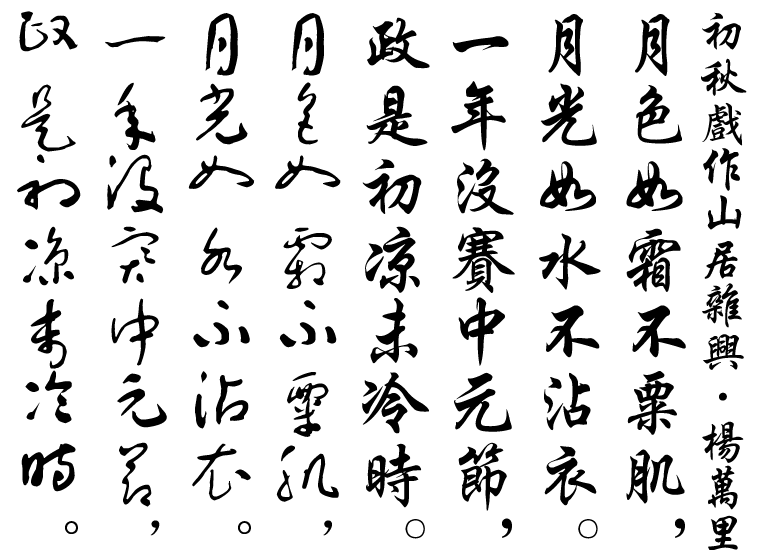 初秋戲作山居雜興・楊萬里
月色如霜不粟肌，
月光如水不沾衣。
一年沒賽中元節，
政是初凉未冷時。
月色如霜不粟肌，
月光如水不沾衣。
一年沒賽中元節，
政是初凉未冷時。